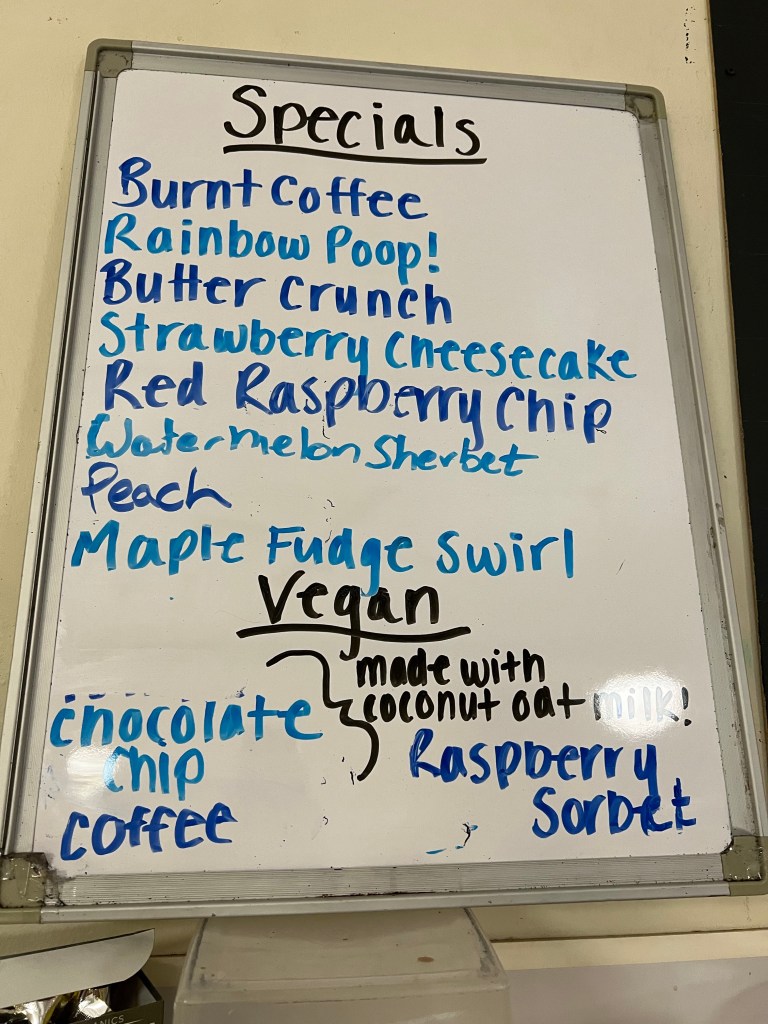 Specials
Burnt Coffee
Rainbow Poop!
Butter Crunch
Strawberry Cheesecake
Red Raspberry Chip
Watermelon Sherbet
Peach
Maple Fudge Swirl
Vegan
made with
coconut oat milk!
chocolate
chip
coffee
Raspberry
Sorbet